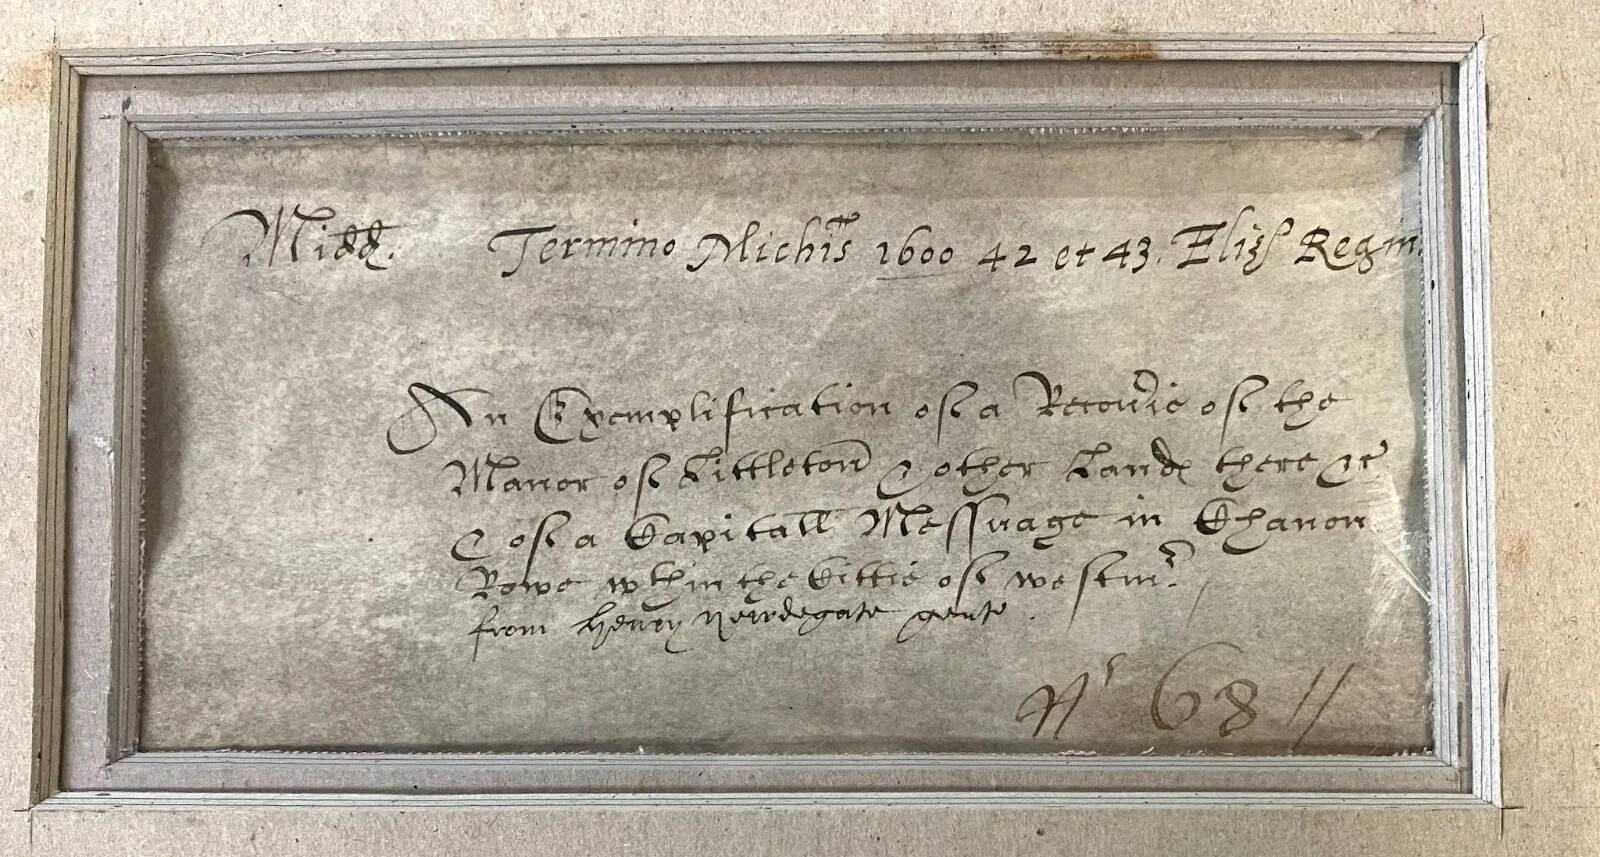 Midd. Termino Michis 1600 42 et 43. Eliz Regin.
An Exemplification of a Recoverie of the
Manor of Littleton & other Lands there &c
& of a Capitall Messuage in Chanon
Rowe wthin the Cittie of westmr.
from Henry Newdegate gente.
Nr 68 //